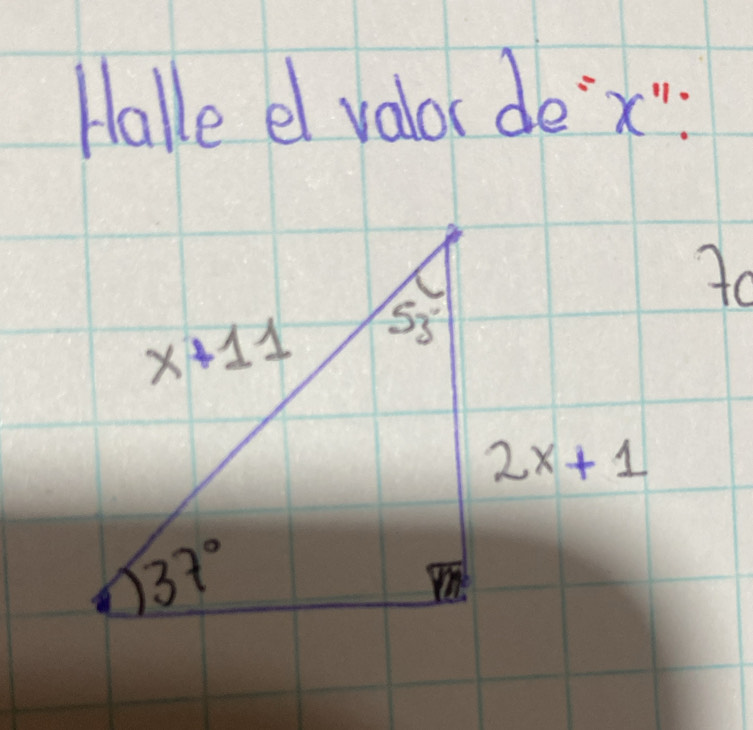 Halle el valor de "x":
53°
x+11
2x+1
37°